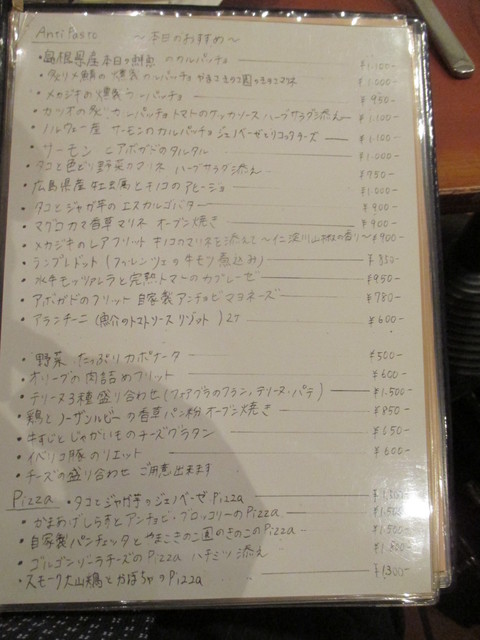 Anti Pasto ～本日のおすすめ～
・島根県産本日の鮮魚 のカルパッチョ ¥1.100-
・炙り〆鯖の燻製カルパッチョ ¥1.000-
・メカジキの燻製カルパッチョ ¥950-
・カツオの炙りカルパッチョ トマトのケッカソース ハーブサラダ添え ¥1.100-
・ノルウェー産 サーモンのカルパッチョ ジェノベーゼとリコッタチーズ ¥1.100-
・サーモンとアボガドのタルタル ¥1.000-
・タコと色どり野菜のマリネ ハーブサラダ添え ¥950-
・広島県産牡蠣とキノコのアヒージョ ¥1.000-
・タコとジャガ芋のエスカルゴバター ¥900-
・マグロカマ香草マリネ オーブン焼き ¥900-
・メカジキのレアフリット キノコのマリネを添えて～仁淀川山椒の香り～ ¥900-
・ランプレドット(フィレンツェの牛モツ煮込み)
・水牛モッツァレラと完熟トマトのカプレーゼ ¥950-
・アボガドのフリット 自家製アンチョビマヨネーズ ¥780-
・アランチーニ(魚介のトマトソースリゾット)2ケ ¥600-
・野菜たっぷりカポナータ ¥500-
・オリーブの肉詰めフリット ¥600-
・テリーヌ3種盛り合わせ(フォアグラのフラン、テリーヌ・パテ) ¥1.500-
・鶏とノーザンルビーの香草パン粉オーブン焼き ¥850-
・牛すじとじゃがいものチーズグラタン
・イベリコ豚のリエット ¥600-
・チーズの盛り合わせ ご用意出来ます
Pizza ・タコとジャガ芋のジェノベーゼPizza
・かまあげしらすとアンチョビ・ブロッコリーのPizza ¥1.500-
・自家製パンチェッタとやまこきのこ園のきのこのPizza ¥1.500-
・ゴルゴンゾーラチーズのPizza ハチミツ添え
・スモーク大山鶏とかぼちゃのPizza ¥1300-